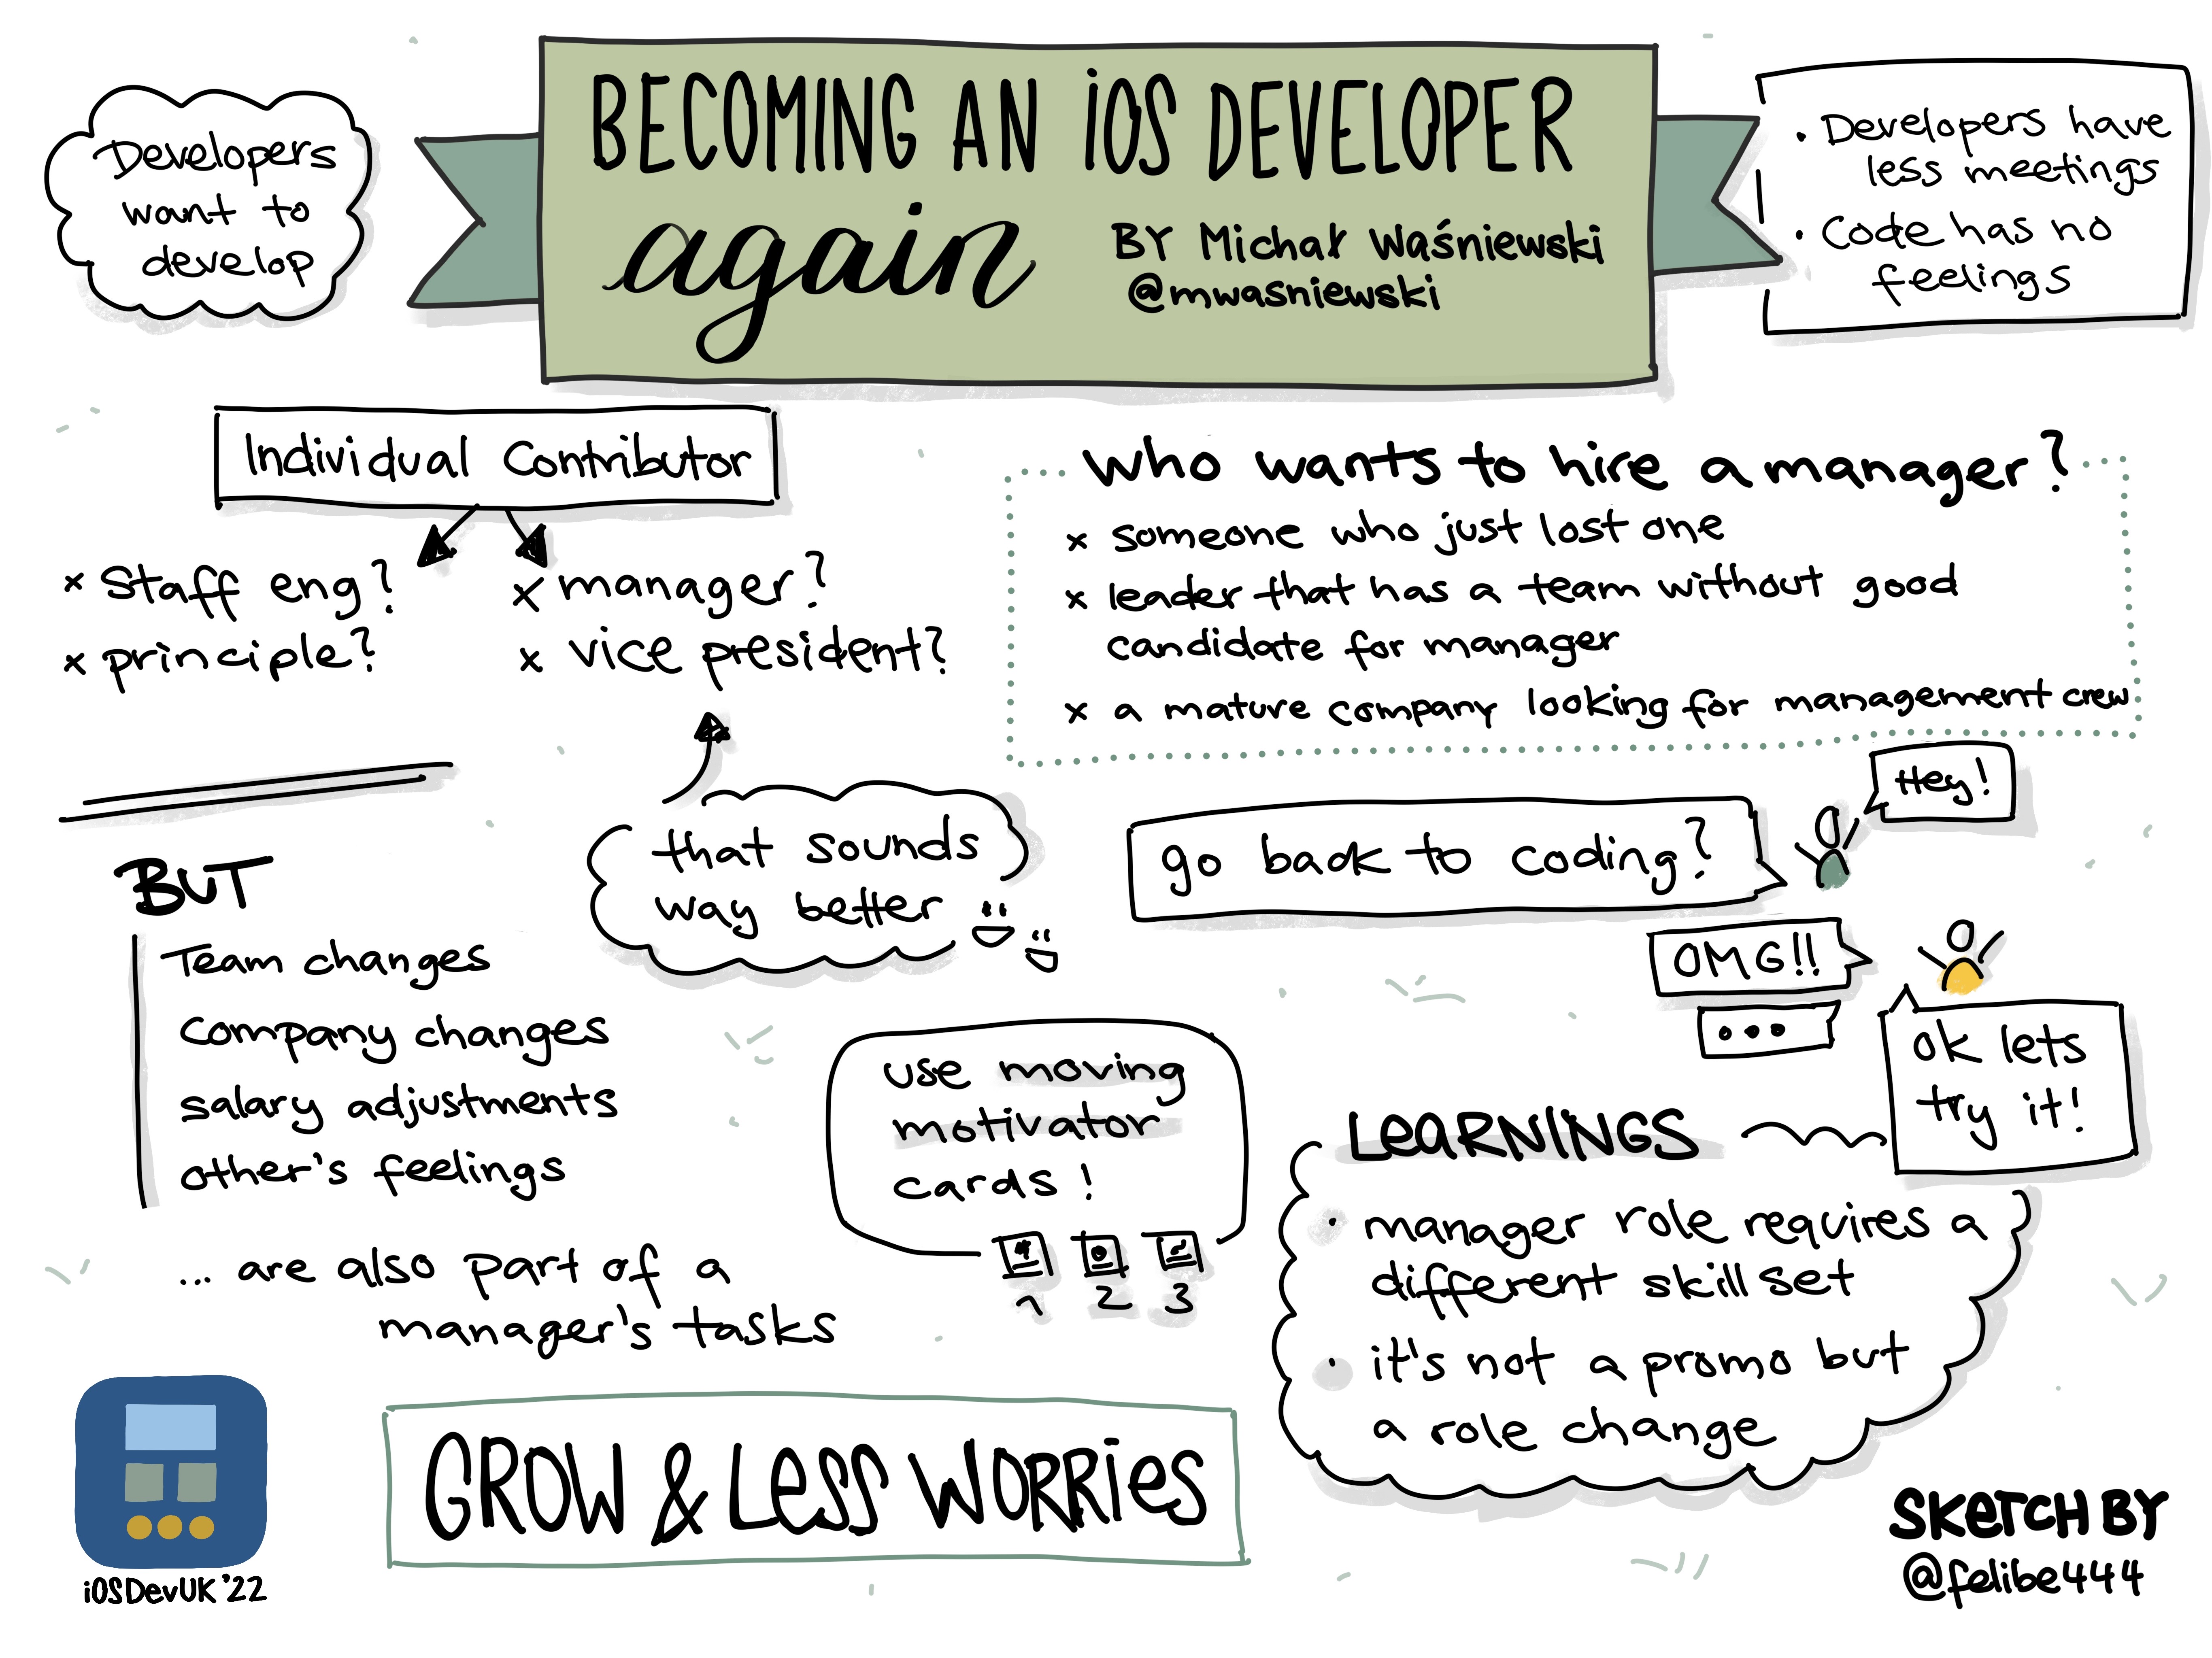 Developers
want to
develop
BECOMING AN iOS DEVELOPER
again
BY Michał Waśniewski
@mwasniewski
• Developers have
less meetings
• Code has no
feelings
Individual Contributor
x Staff eng?
x principle?
x manager?
x vice president?
that sounds
way better
who wants to hire a manager?
x someone who just lost one
x leader that has a team without good
candidate for manager
x a mature company looking for management crew
BUT
Team changes
Company changes
salary adjustments
other's feelings
... are also part of a
manager's tasks
use moving
motivator
cards!
1 2 3
Hey!
go back to coding?
OMG!!
...
ok lets
try it!
LEARNINGS
• manager role requires a
different skill set
• it's not a promo but
a role change
GROW & Less WORRies
iOSDevUK '22
SKETCH BY
@felibe444